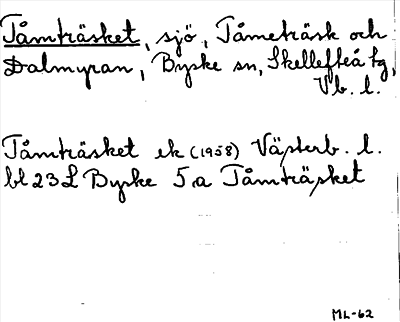 Tåmträsket, sjö, Tåmeträsk och
Dalmyran, Byske sn, Skellefteå tg,
Vb. l.
Tåmträsket ek (1958) Västerb. l.
bl 23 L Byske 5a Tåmträsket
ML-62